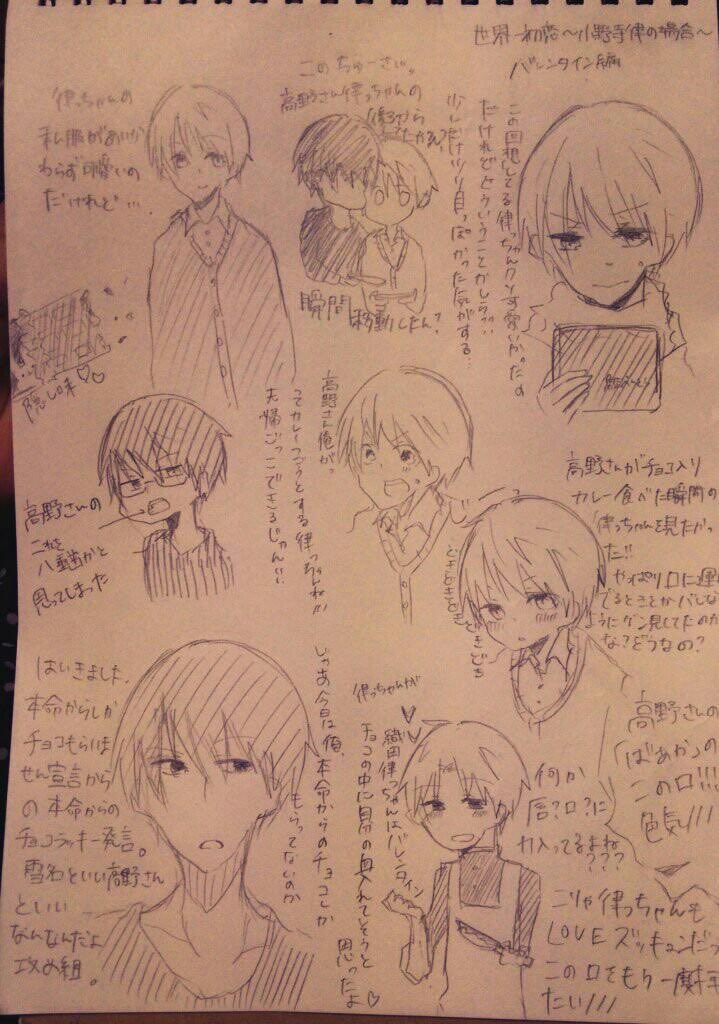 世界一初恋〜小野寺律の場合〜
バレンタイン編
この回想してる律っちゃんクソ可愛いかったの
だけれどどういうことかしら??
少しだけツリ目っぽかった気がする…
このちゅーさい。
高野さん律っちゃんの
後ろから
瞬間
移動したん?
律っちゃんの
私服があいか
わらず可愛いの
だけれど…
隠し味♡♡
高野さんが
チョコ入り
カレー食べた瞬間の
律っちゃんを見たかっ
た!!
やっぱり口に運
でるときとかバレな
ようにガン見してたのか
な?どうなの?
高野さん俺がっ
ってカレーつごうとする律っちゃんね!!!
夫婦ごっこできるじゃんい…
高野さんの
これを
八重歯かと
思ってしまった
どきどきどきどきどきどき
高野さんの
「ばあか」の
この口!!!
色気///
何か
唇?口?に
力入ってるよね
???
こりゃ律っちゃんも
LOVEズッキュンだっ
この口をもう一度拝
たい///
律っちゃんが
織田律っちゃんはバレンタイン
チョコの中に自分の血入れてそうと
思ったよ♡
じゃあ今日は俺、
本命からのチョコしか
もらってないのか
はいきました、
本命からしか
チョコもらいま
せん宣言から
の本命からの
チョコラッキー発言。
雪名といい高野さん
といい
なんなんだよ
攻め組。